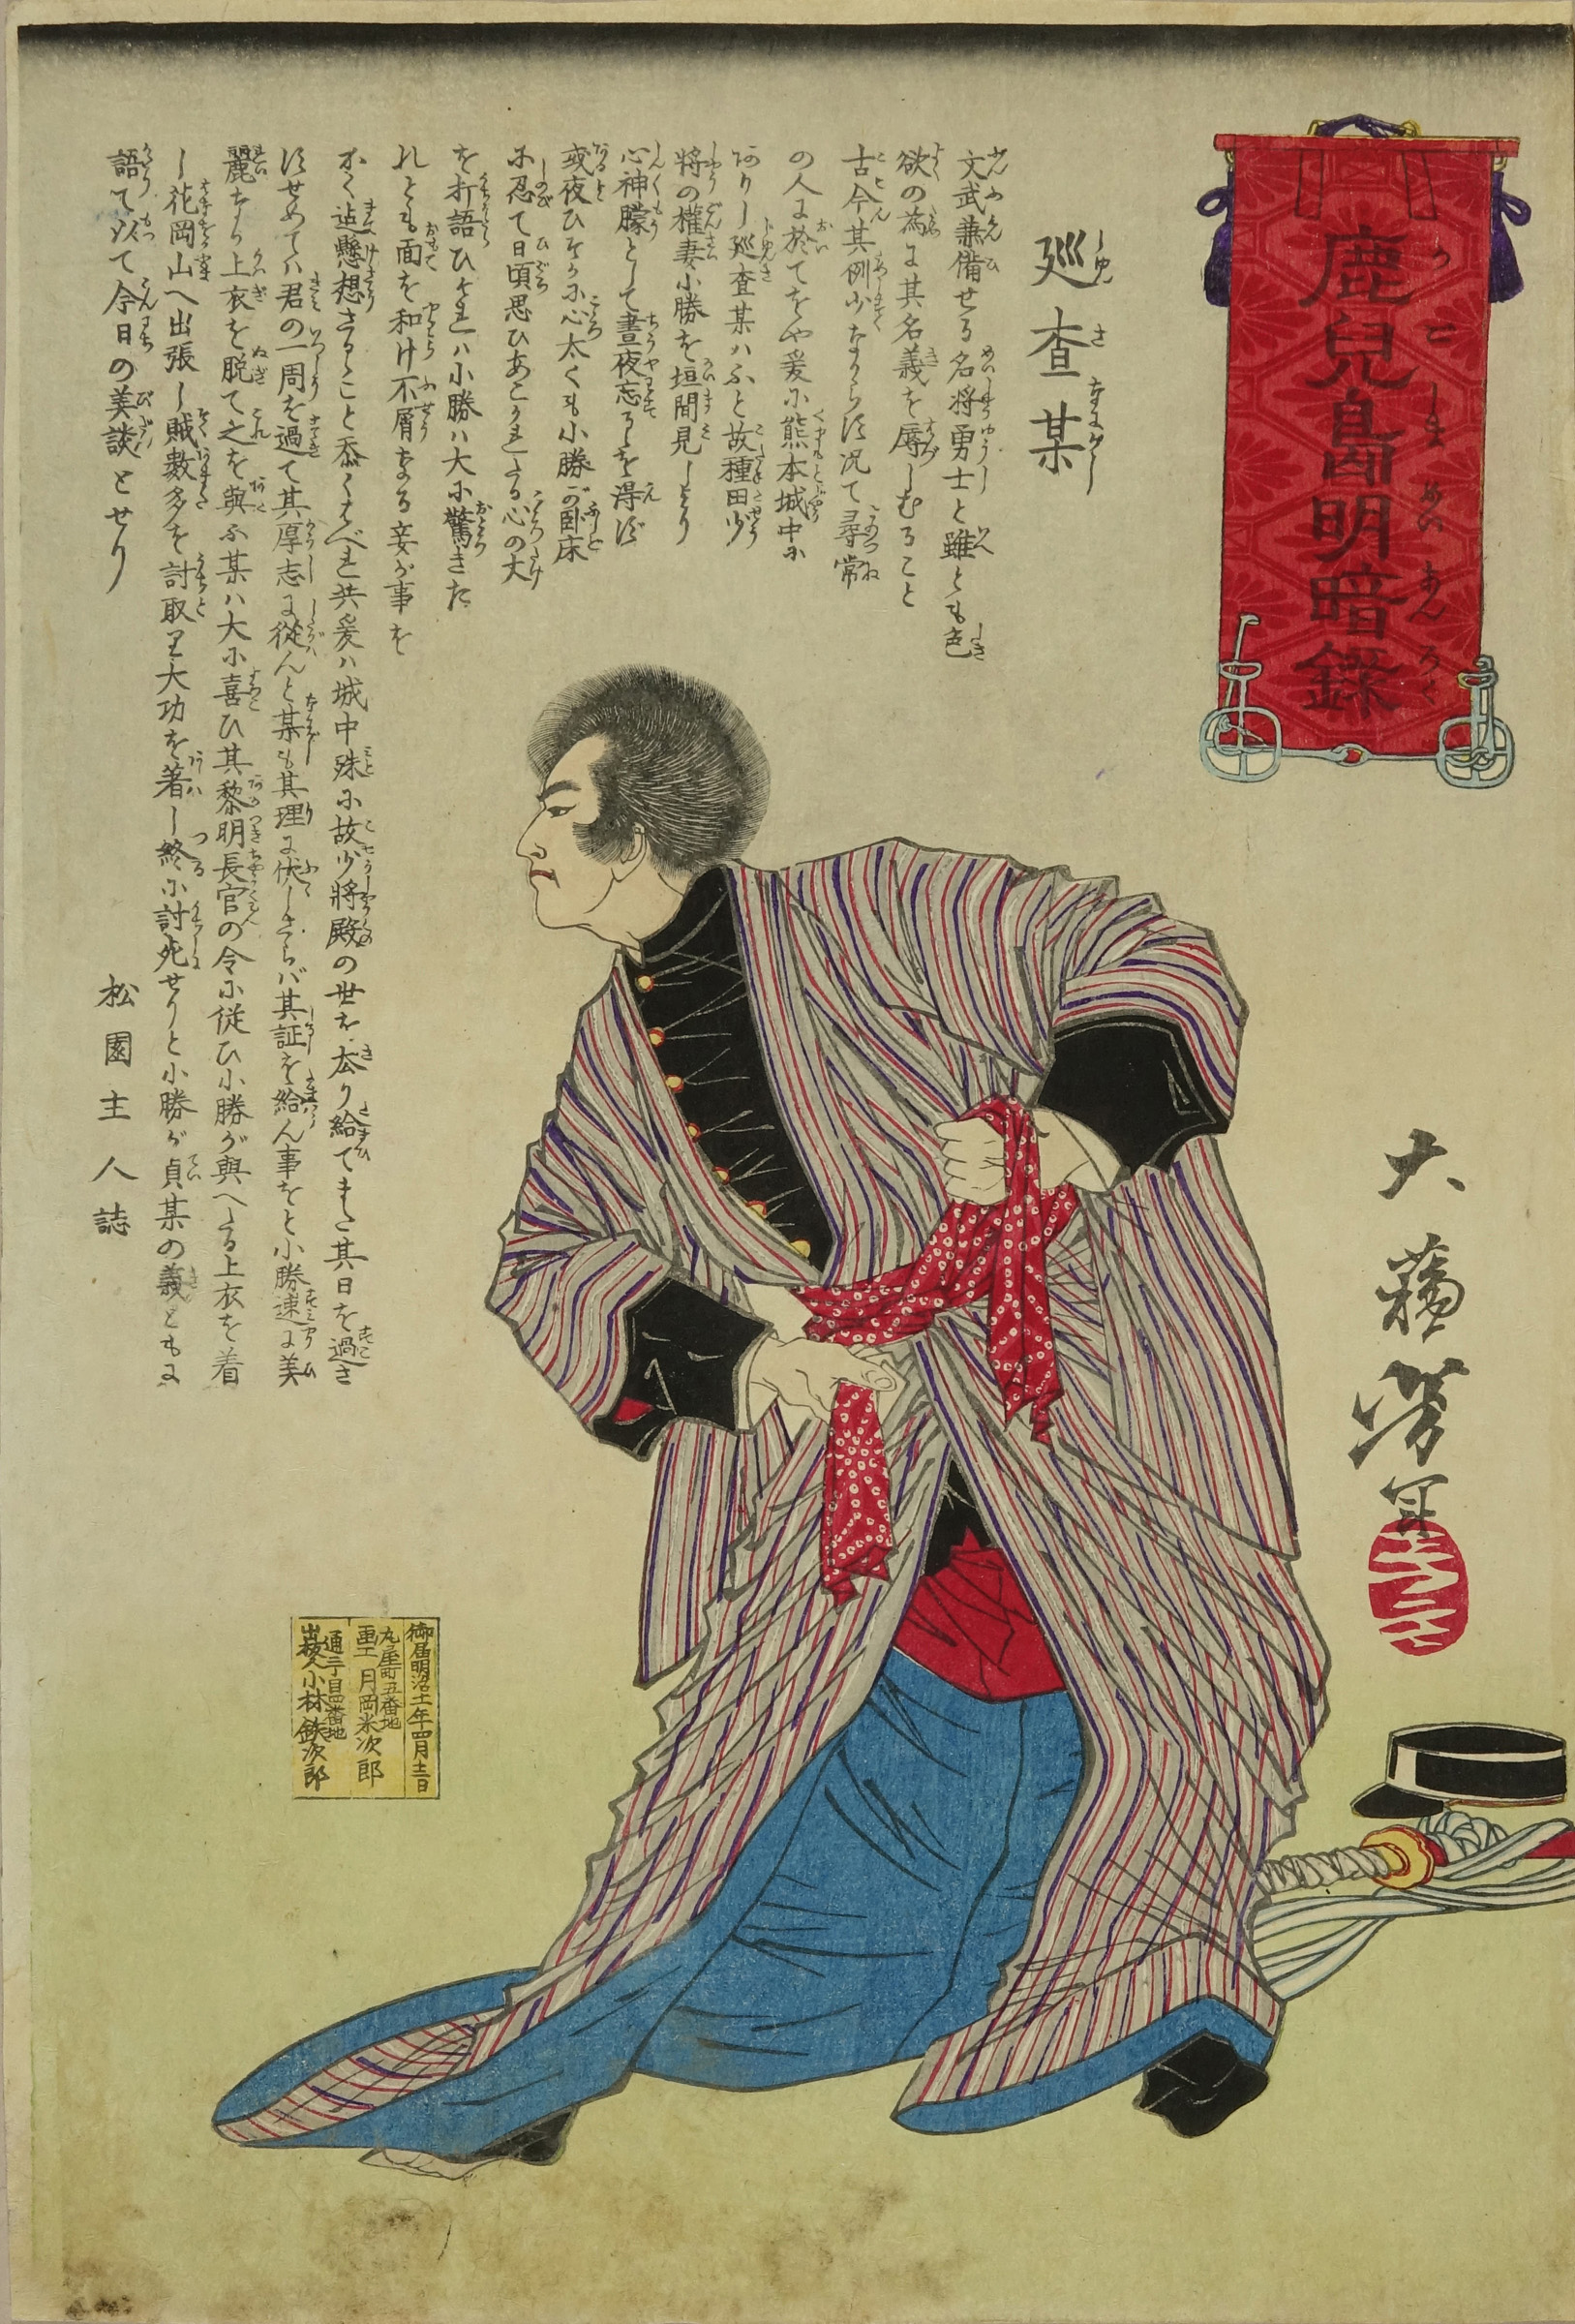 鹿兒島明暗録
かごしまめいあんろく
巡査某
じゆんさなにがし
文武兼備せる名将勇士と雖とも色
欲の為に其名義を辱しむること
古今其例少なからず况て尋常
の人に於てをや爰に熊本城中に
ありし巡査某ハふと故種田少
将の權妻小勝を垣間見しより
心神朦として晝夜忘るを得ず
或夜ひそかに心太くも小勝が臥床
に忍て日頃思ひあこがれたる心の丈
を打語ひけれハ小勝ハ大に驚きた
れとも面を和け不屑なる妾が事を
かく迠懸想さること忝くはべれ共爰ハ城中殊に故少将殿の世を去り給てまた其日を過さ
ずせめてハ君の一周を過て其厚志に從んと某も其理に伏しさらバ其証を給ん事をと小勝速に美
麗なる上衣を脱て之を與ふ某ハ大に喜ひ其黎明長官の令に従ひ小勝が與へたる上衣を着
し花岡山へ出張し賊數多を討取り大功を着し終に討死せりと小勝が貞某の義ともに
語て以て今日の美談とせり
松園主人誌
大蘓芳年
御届明治十一年四月十二日
丸屋町五番地
画工 月岡米次郎
通三丁目四番地
出板人小林鉄次郎